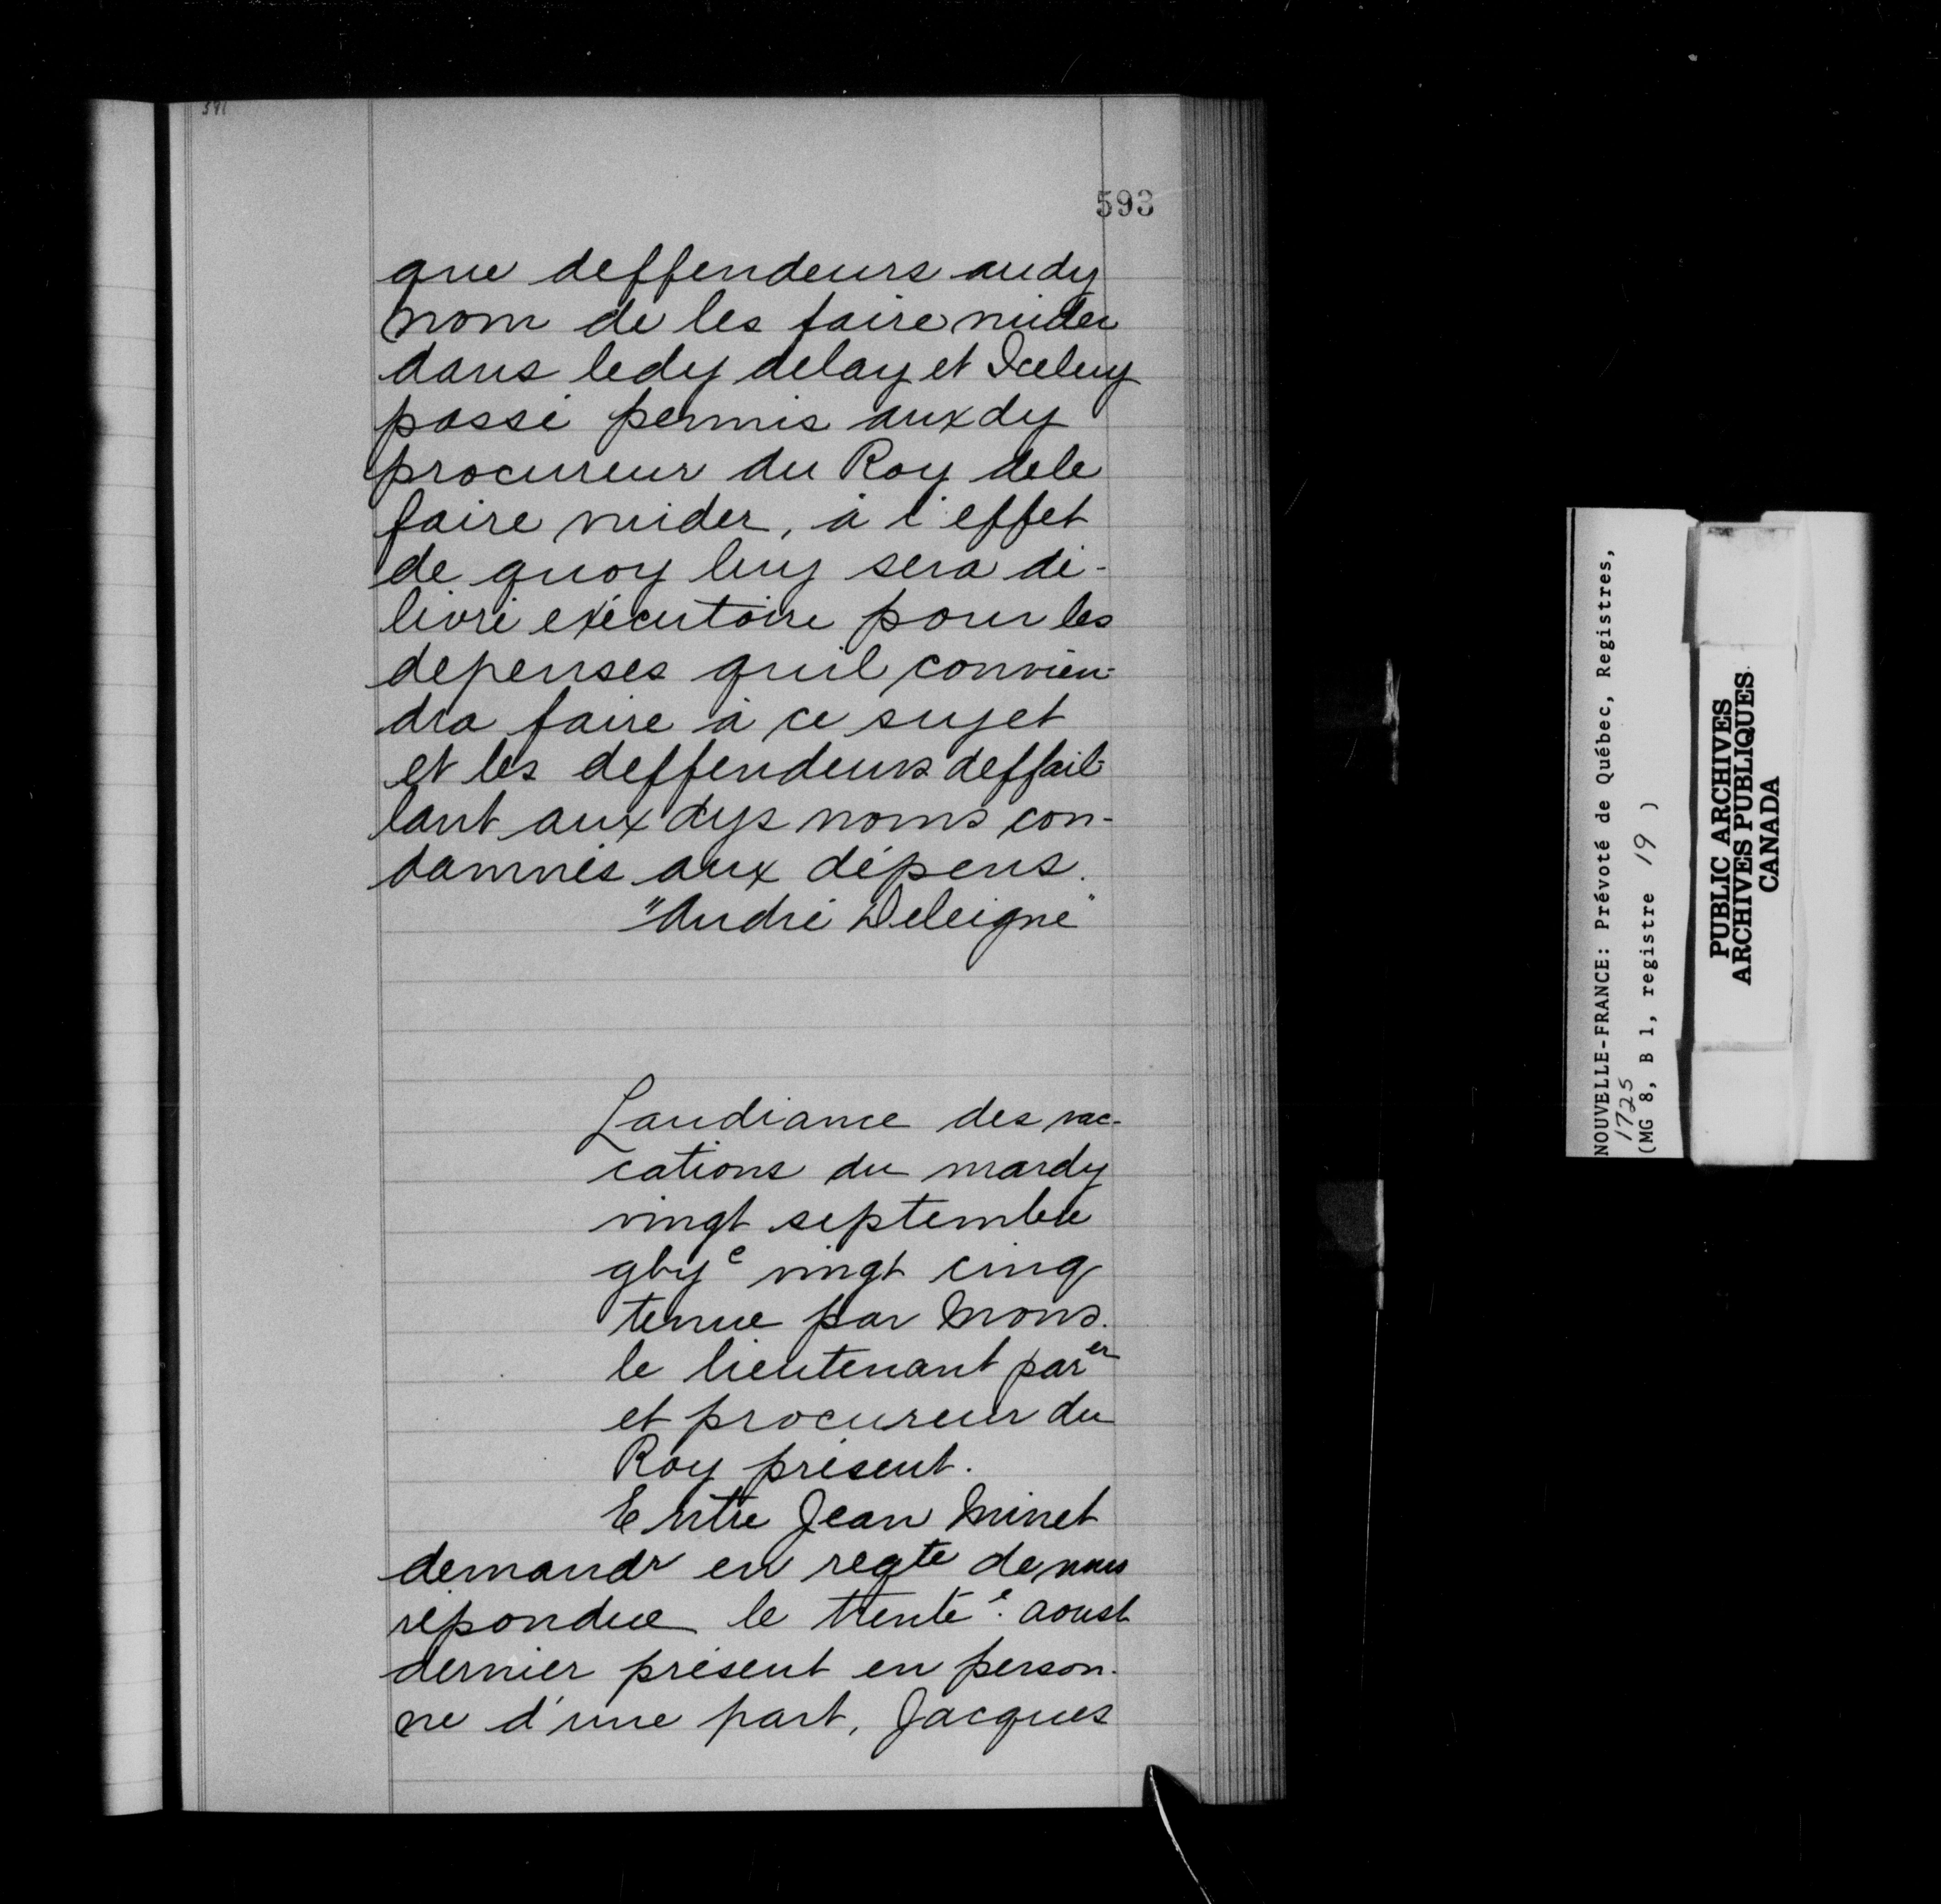 591
593
que deffendeurs audy
nom de les faire vuider
dans ledy delay et Iceluy
passé permis aux dy
procureur du Roy dele
faire vuider, à l'effet
de quoy luy sera dé-
livré exécutoire pour les
depenses quil convien-
dra faire à ce sujet
et les deffendeurs deffail-
lant aux dys noms con-
damnés aux dépens.
"André Deleigne"
Laudiance des vac-
cations du mardy
vingt septembre
gbye vingt cinq
tenue par Mons.
le lieutenant parer
et procureur du
Roy présent.
Entre Jean Minet
demandr en reqte de nous
répondue le trente e. aoust
dernier présent en person-
ne d'une part, Jacques
NOUVELLE-FRANCE: Prévoté de Québec, Registres,
1725
(MG 8, B 1, registre 19 )
PUBLIC ARCHIVES
ARCHIVES PUBLIQUES
CANADA